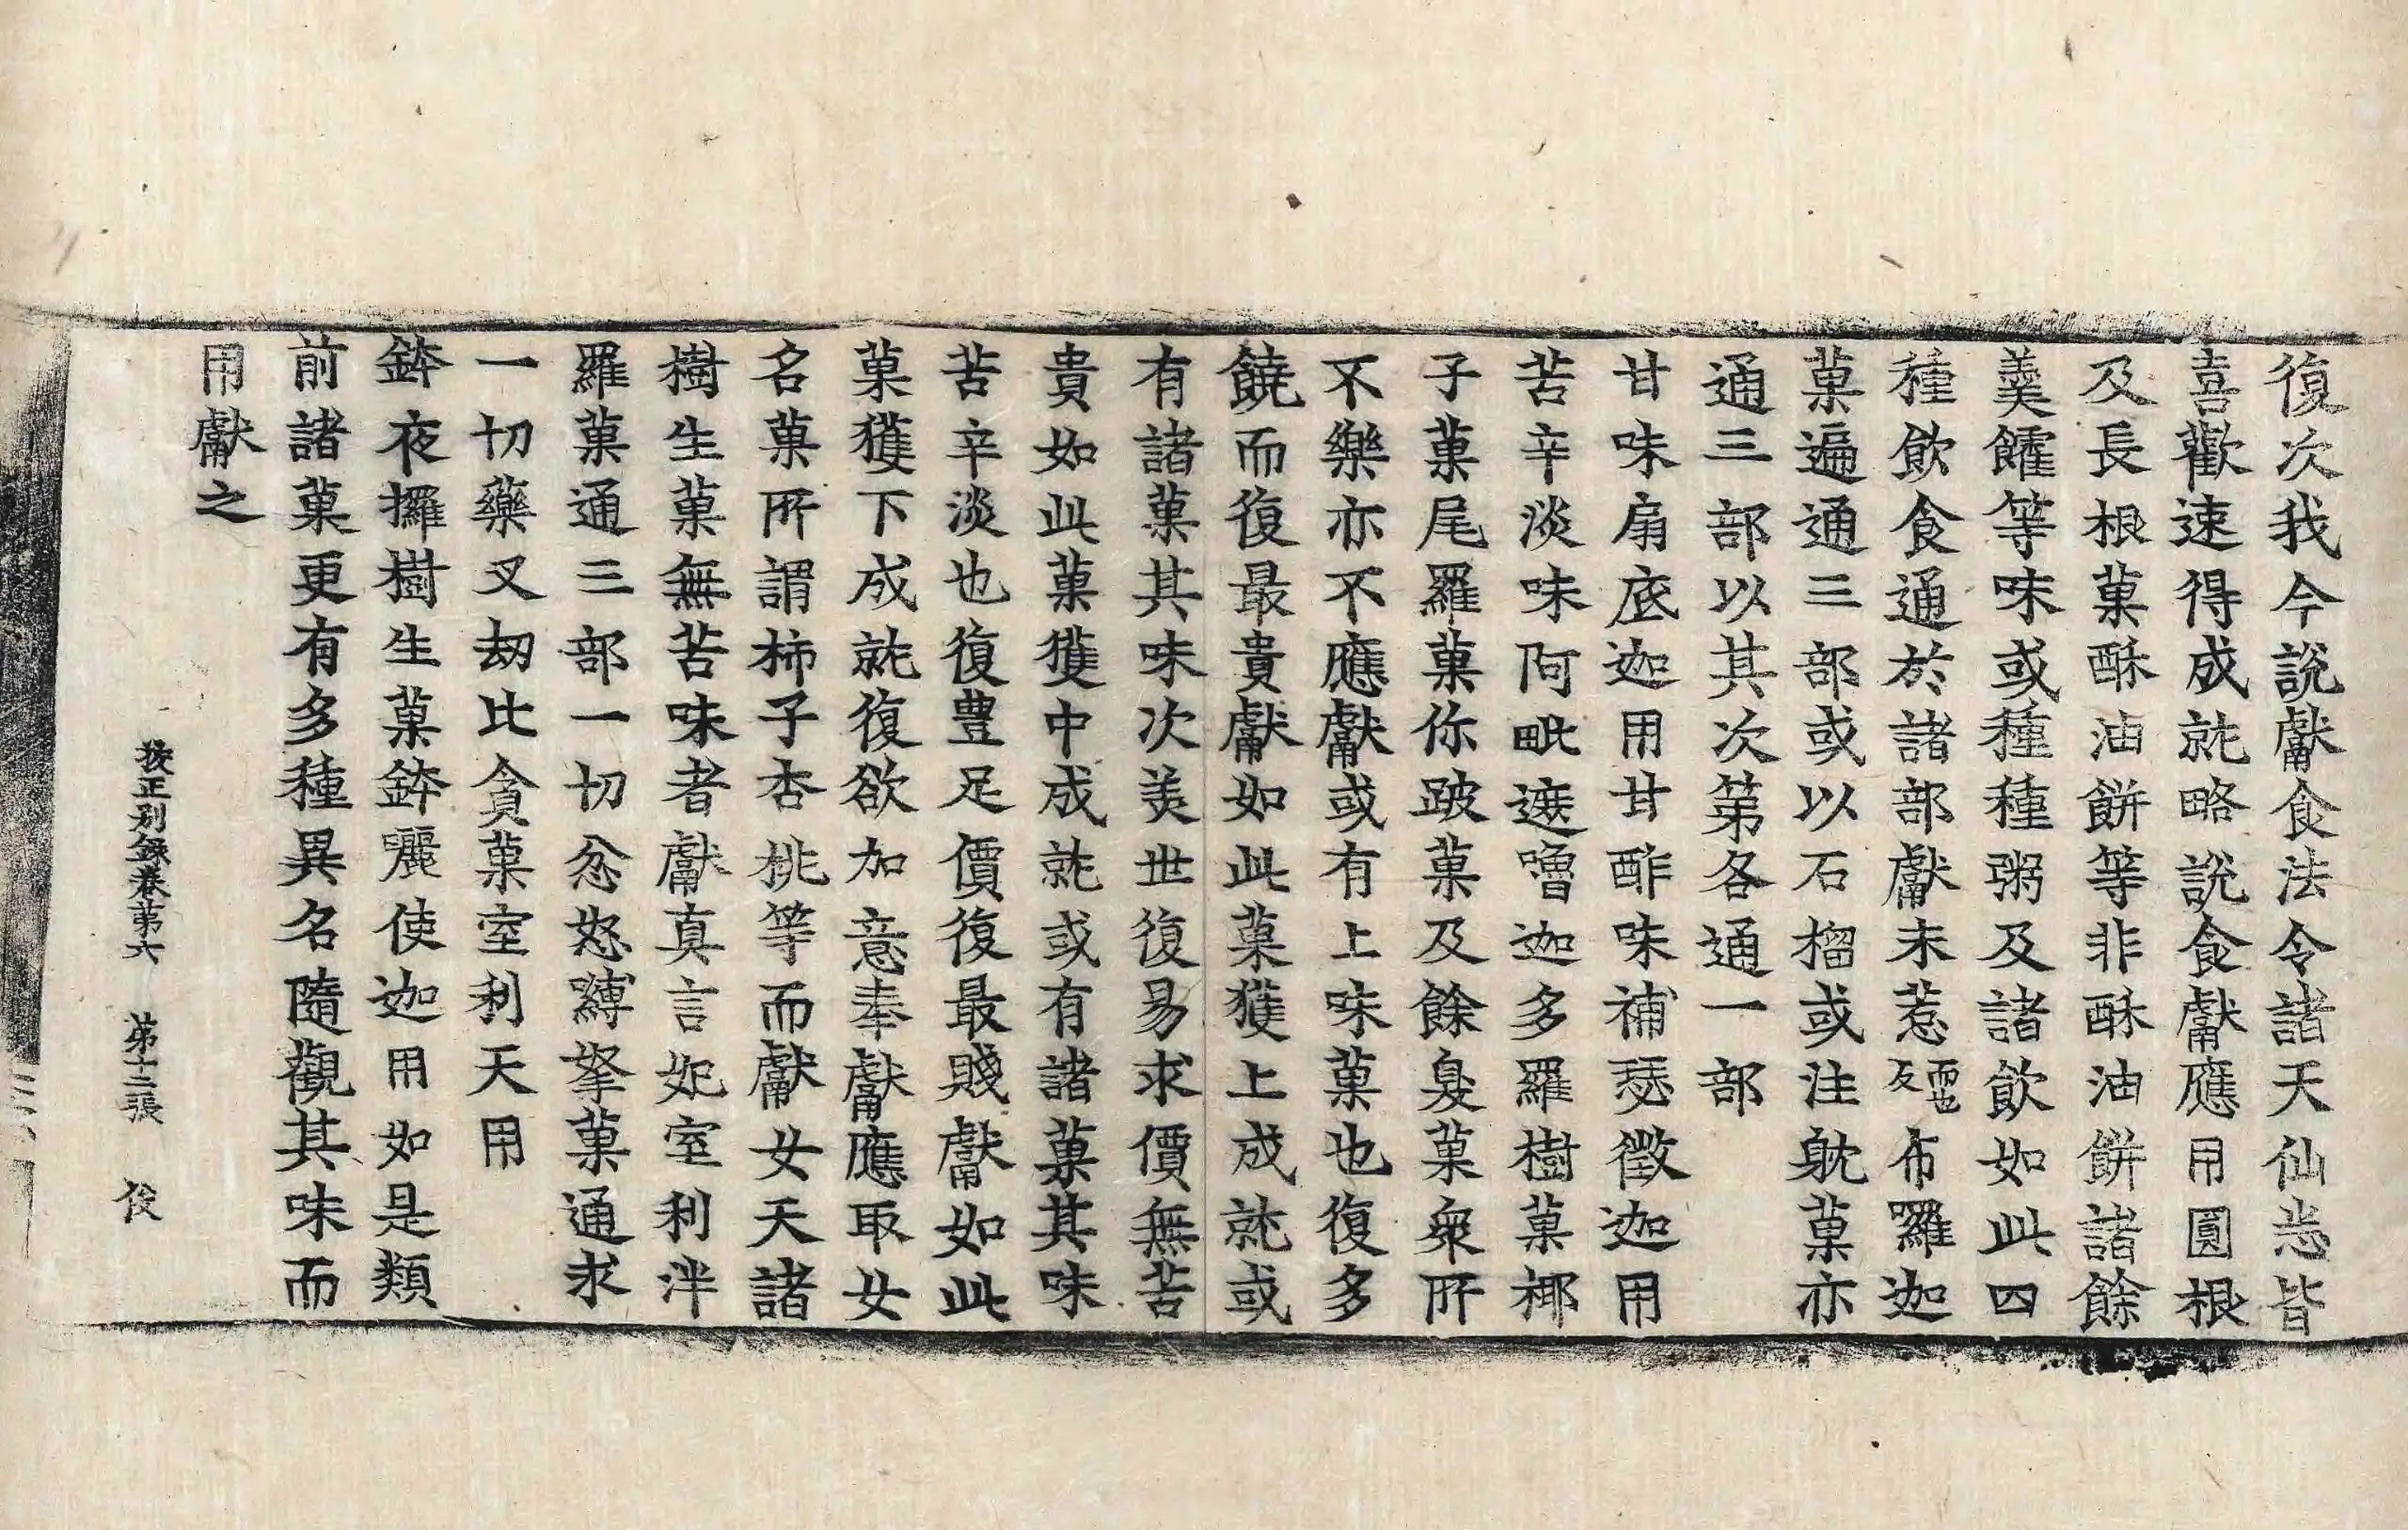 復次我今說獻食法令諸天仙悉皆
喜歡速得成就略說食獻應用圓根
及長根菓酥油餅等非酥油餅諸餘
羹臛等味或種種粥及諸飲如此四
種飲食通於諸部獻未惹而也反布羅迦
菓遍通三部或以石榴或注躭菓亦
通三部以其次第各通一部
甘味扇底迦用甘酢味補瑟徵迦用
苦辛淡味阿毗遮嚕迦多羅樹菓椰
子菓尾羅菓你跛菓及餘臭菓衆所
不樂亦不應獻或有上味菓也復多
饒而復最貴獻如此菓獲上成就或
有諸菓其味次美世復易求價無苦
貴如此菓獲中成就或有諸菓其味
苦辛淡也復豊足價復最賤獻如此
菓獲下成就復欲加意奉獻應取女
名菓所謂柿子杏桃等而獻女天諸
樹生菓無苦味者獻真言妃室利泮
羅菓通三部一切忿怒嚩拏菓通求
一切藥叉刼比貪菓室利天用
鉢夜攞樹生菓鉢囇使迦用如是類
前諸菓更有多種異名隨觀其味而
用獻之
挍正別錄卷第六 第十二張 俊